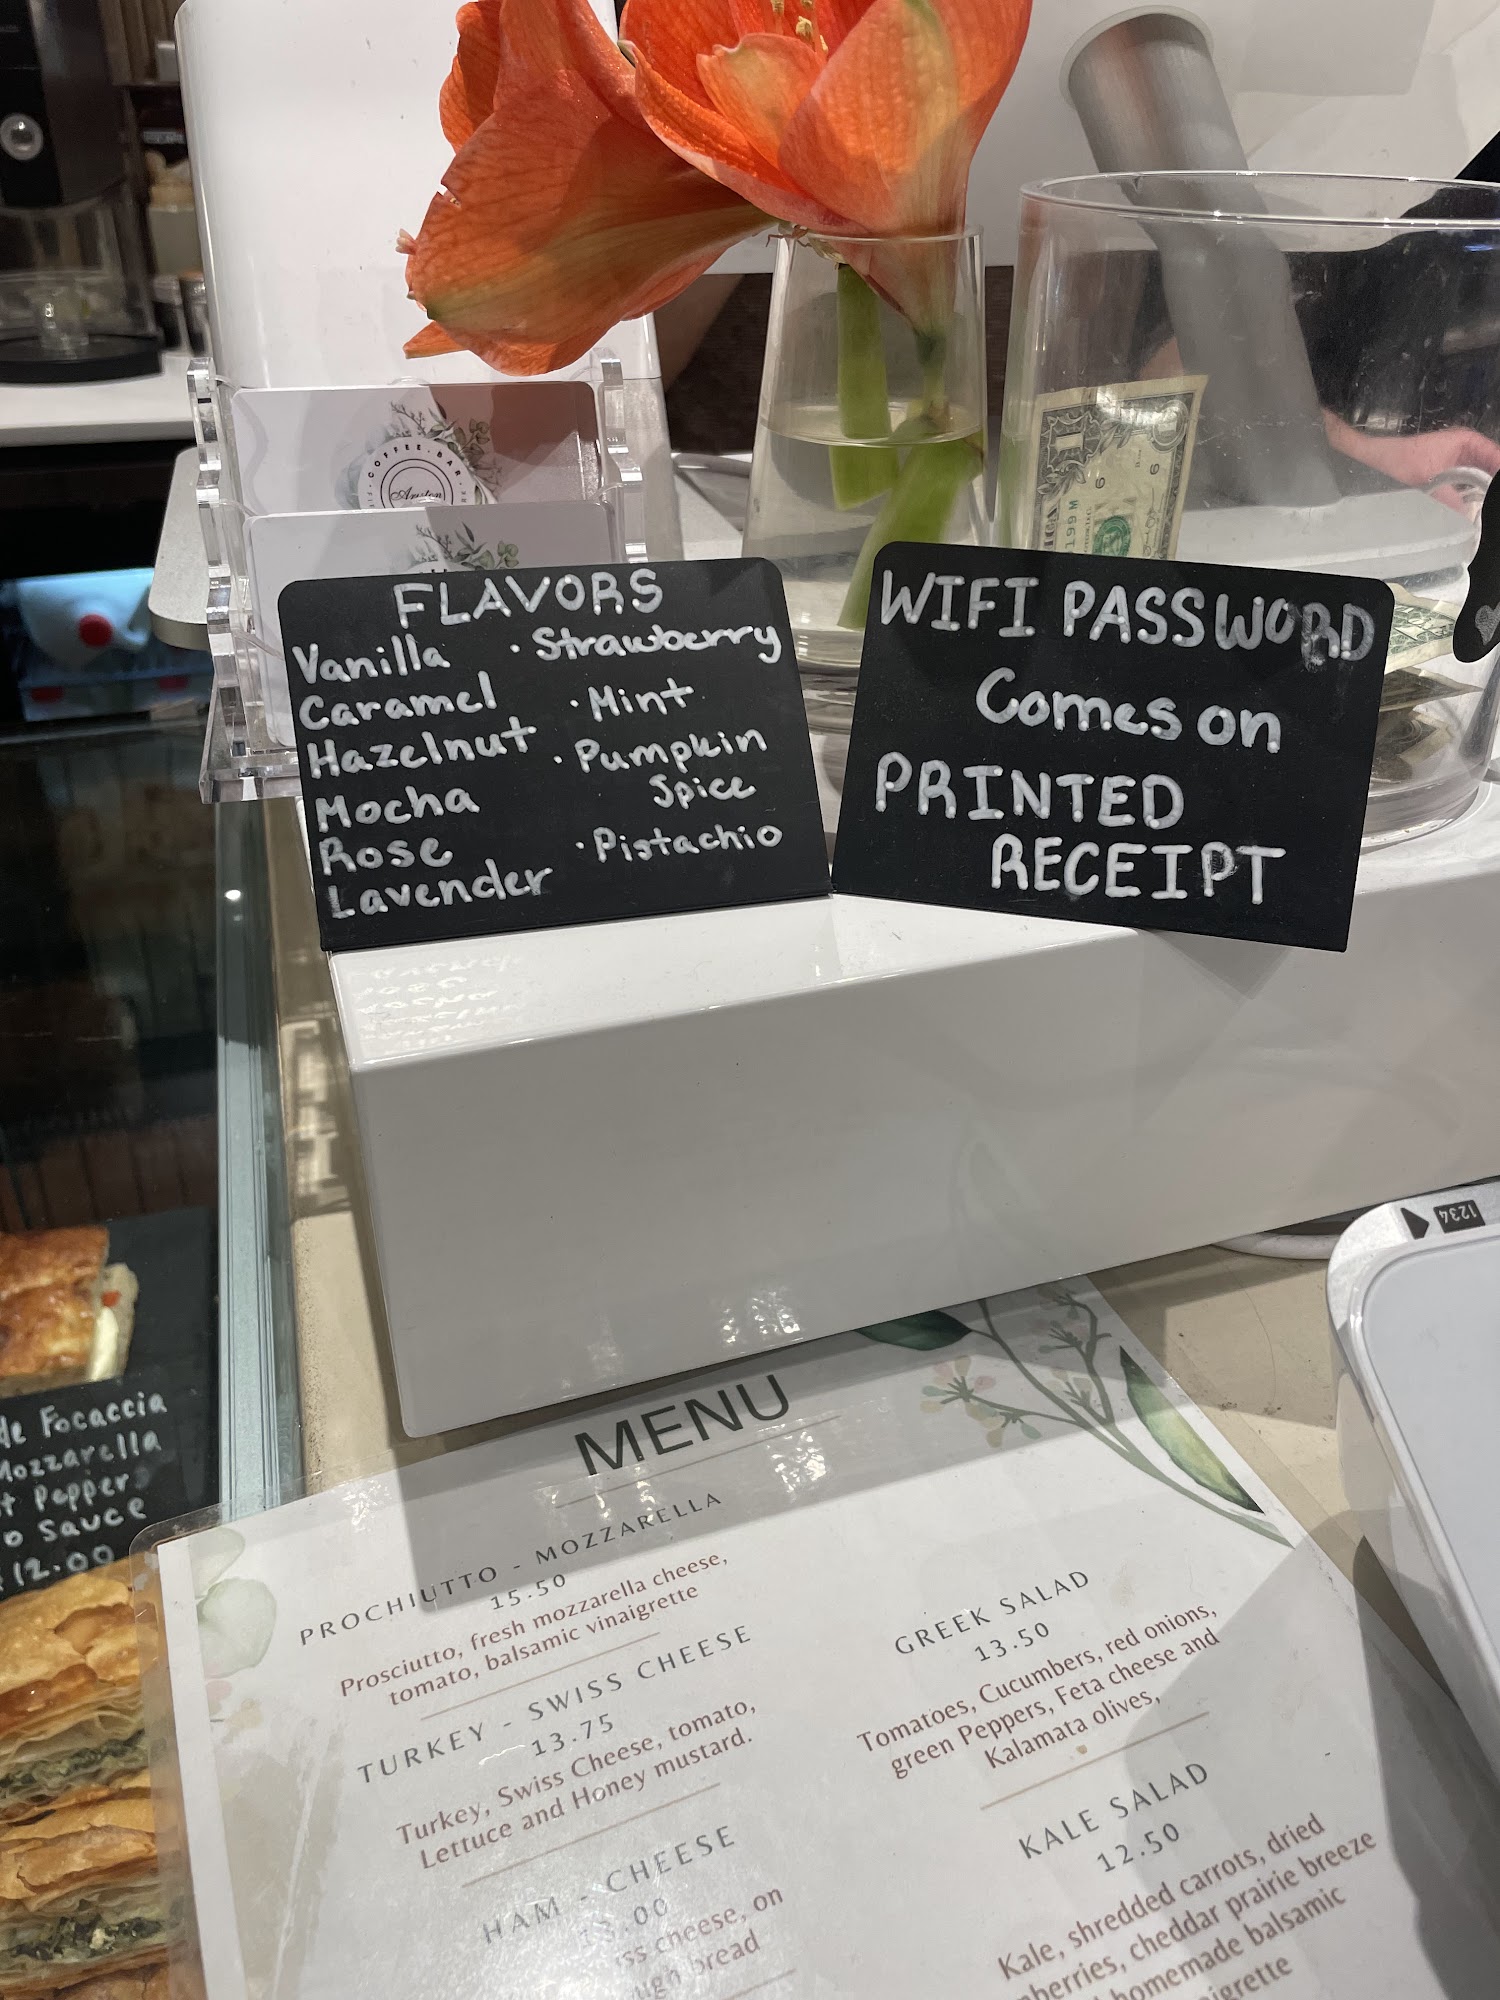 COFFEE.BAR
Ariston
FLAVORS
Vanilla
Caramel
Hazelnut
Mocha
Rose
Lavender
· Strawberry
· Mint
· Pumpkin
Spice
· Pistachio
WIFI PASSWORD
Comes on
PRINTED
RECEIPT
1234
Focaccia
Mozzarella
Pepper
Sauce
12.00
MENU
PROCHIUTTO - MOZZARELLA
15.50
Prosciutto, fresh mozzarella cheese,
tomato, balsamic vinaigrette
TURKEY - SWISS CHEESE
13.75
Turkey, Swiss Cheese, tomato,
Lettuce and Honey mustard.
HAM - CHEESE
cheese, on
bread
GREEK SALAD
13.50
Tomatoes, Cucumbers, red onions,
green Peppers, Feta cheese and
Kalamata olives,
KALE SALAD
12.50
Kale, shredded carrots, dried
cheddar prairie breeze
homemade balsamic